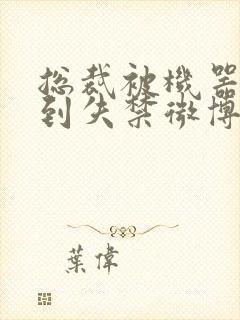 总裁被機器
到失禁微博
葉偉